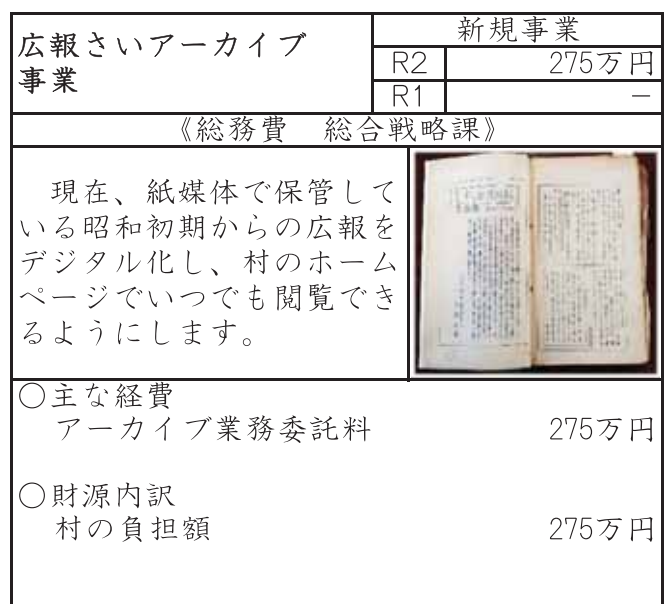 広報さいアーカイブ
事業
新規事業
R2 275万円
R1 －
《総務費　総合戦略課》
現在、紙媒体で保管して
いる昭和初期からの広報を
デジタル化し、村のホーム
ページでいつでも閲覧でき
るようにします。
○主な経費
アーカイブ業務委託料 275万円
○財源内訳
村の負担額 275万円